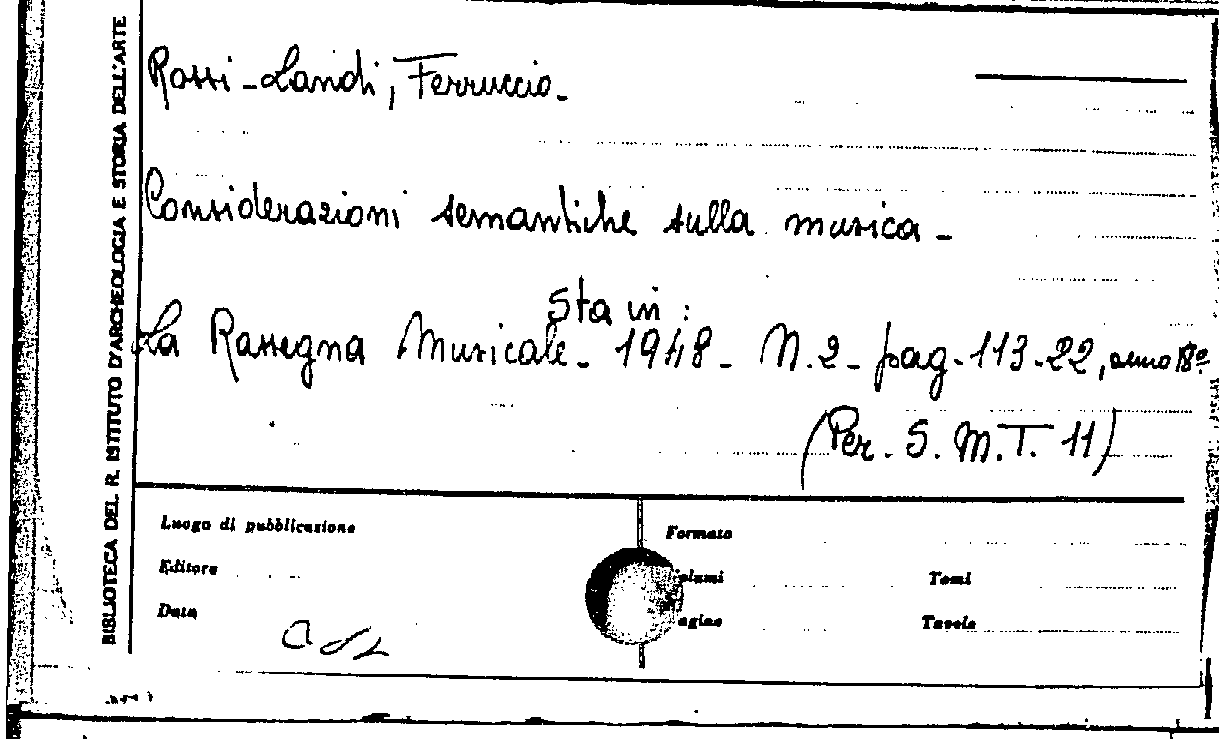 BIBLIOTECA DEL R. ISTITUTO D'ARCHEOLOGIA E STORIA DELL'ARTE
Rossi-Landi, Ferruccio.
Considerazioni semantiche sulla musica.
Sta in:
La Rassegna Musicale. 1948. N.2. pag.113-22, anno 18º
(Per. S. M.T. 11)
Luogo di pubblicazione
Formato
Editore
olumi
Tomi
Data
agine
Tavole